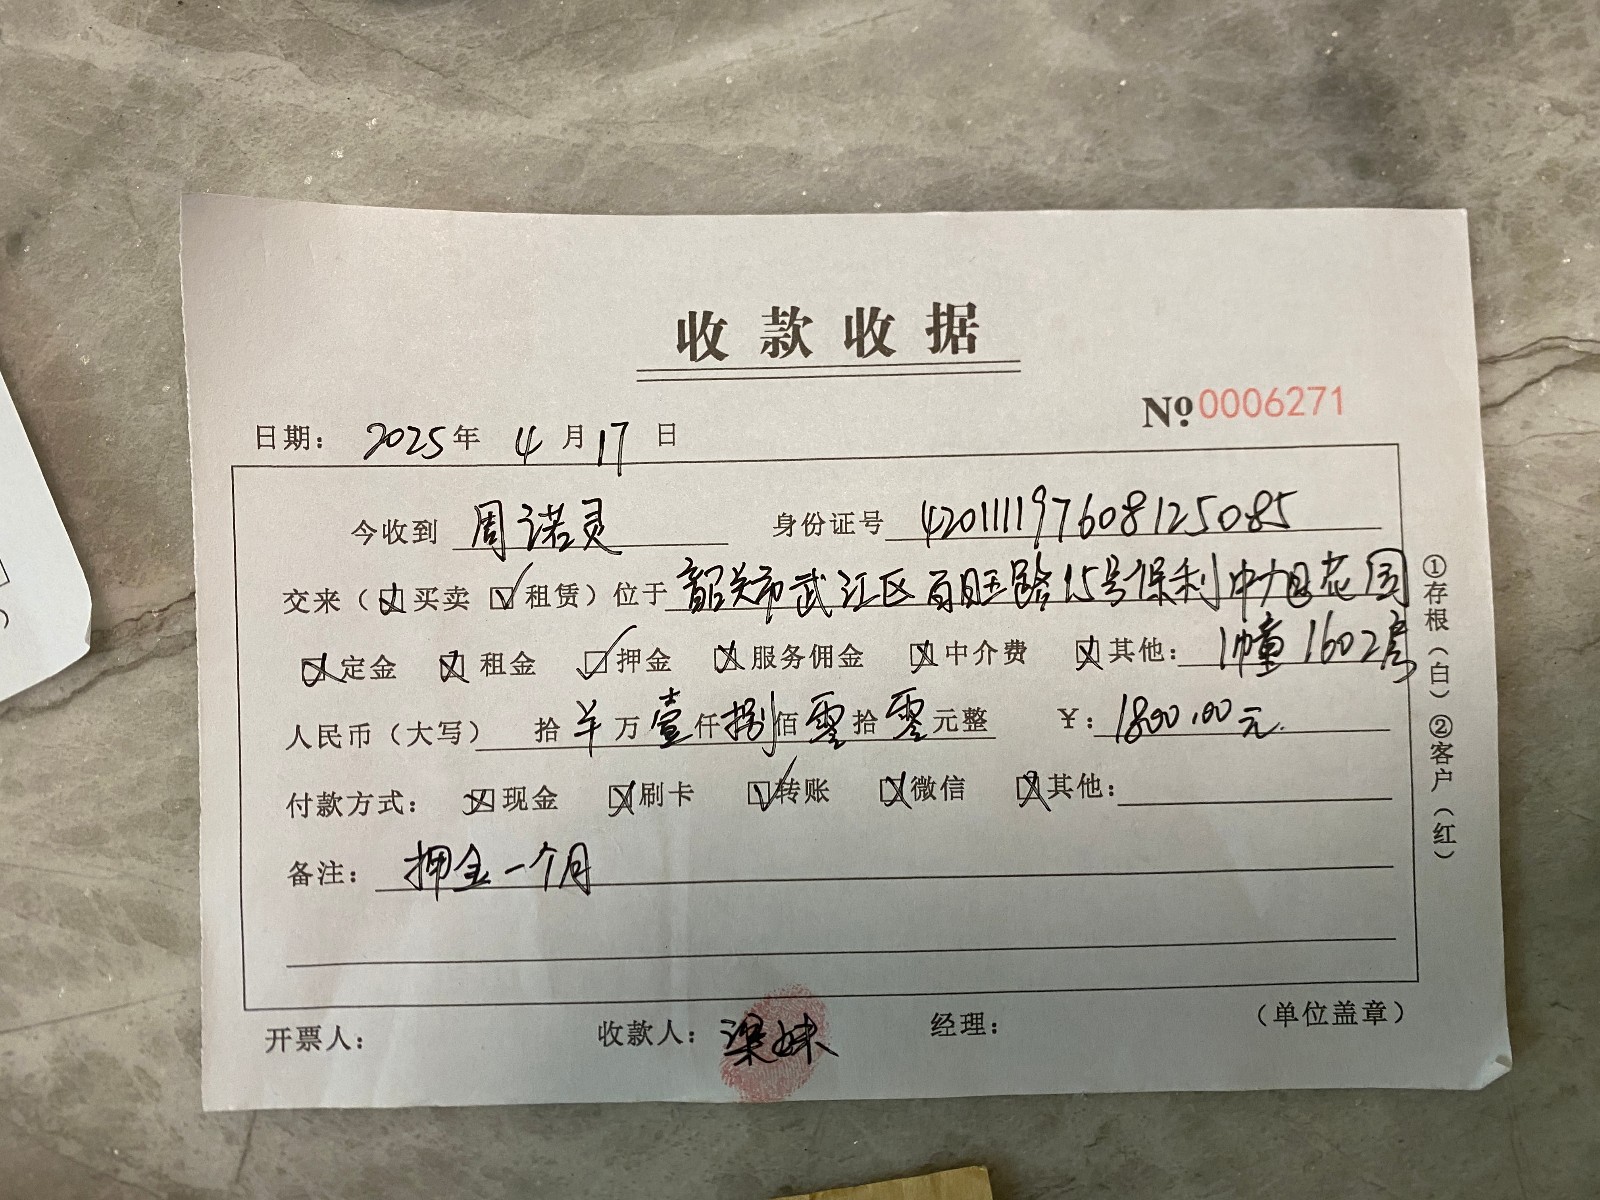 收款收据
№0006271
日期：2025年 4月17日
今收到 周诺灵 身份证号 420111197608125085
交来（☒买卖 ☑租赁）位于韶关市武江区百旺路15号保利中旭花园
☒定金 ☒租金 ☑押金 ☒服务佣金 ☒中介费 ☒其他：1幢1602房
人民币（大写） 拾 万壹仟捌佰零拾零元整 ￥：1800.00元.
付款方式：☒现金 ☒刷卡 ☑转账 ☒微信 ☒其他：
备注：押金一个月
开票人： 收款人：梁妹 经理： （单位盖章）
①存根（白）②客户（红）